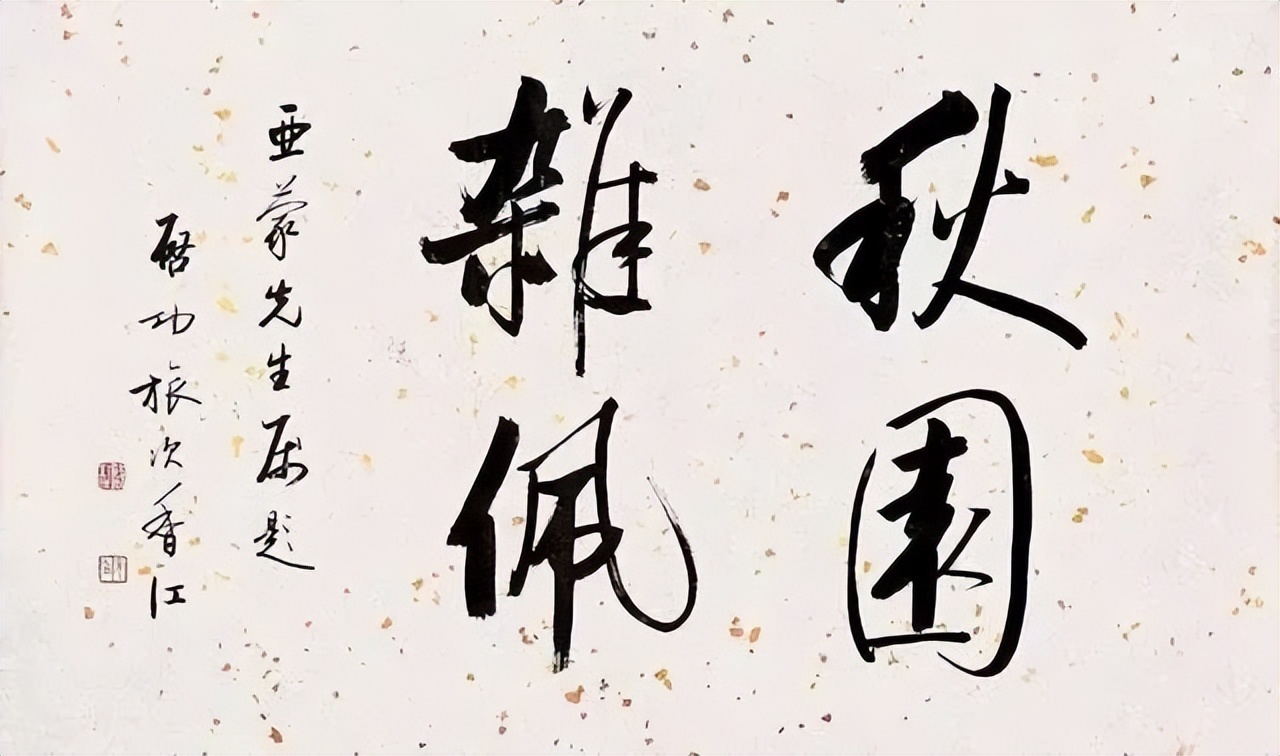 秋園
雜佩
亚蒙先生属題
啓功旅次香江